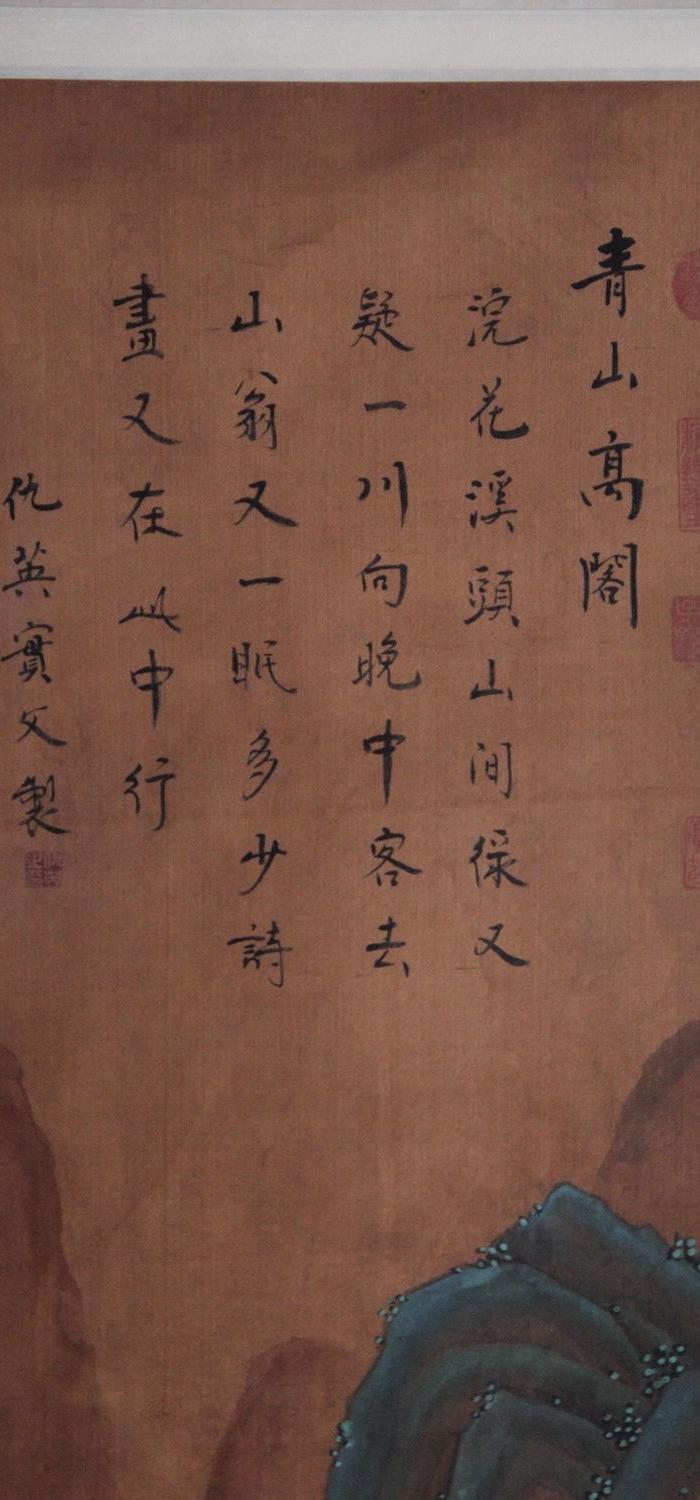 青山高閣
浣花溪頭山間徑又
疑一川向晚中客去
山翁又一眠多少詩
畫又在此中行
仇英實父製